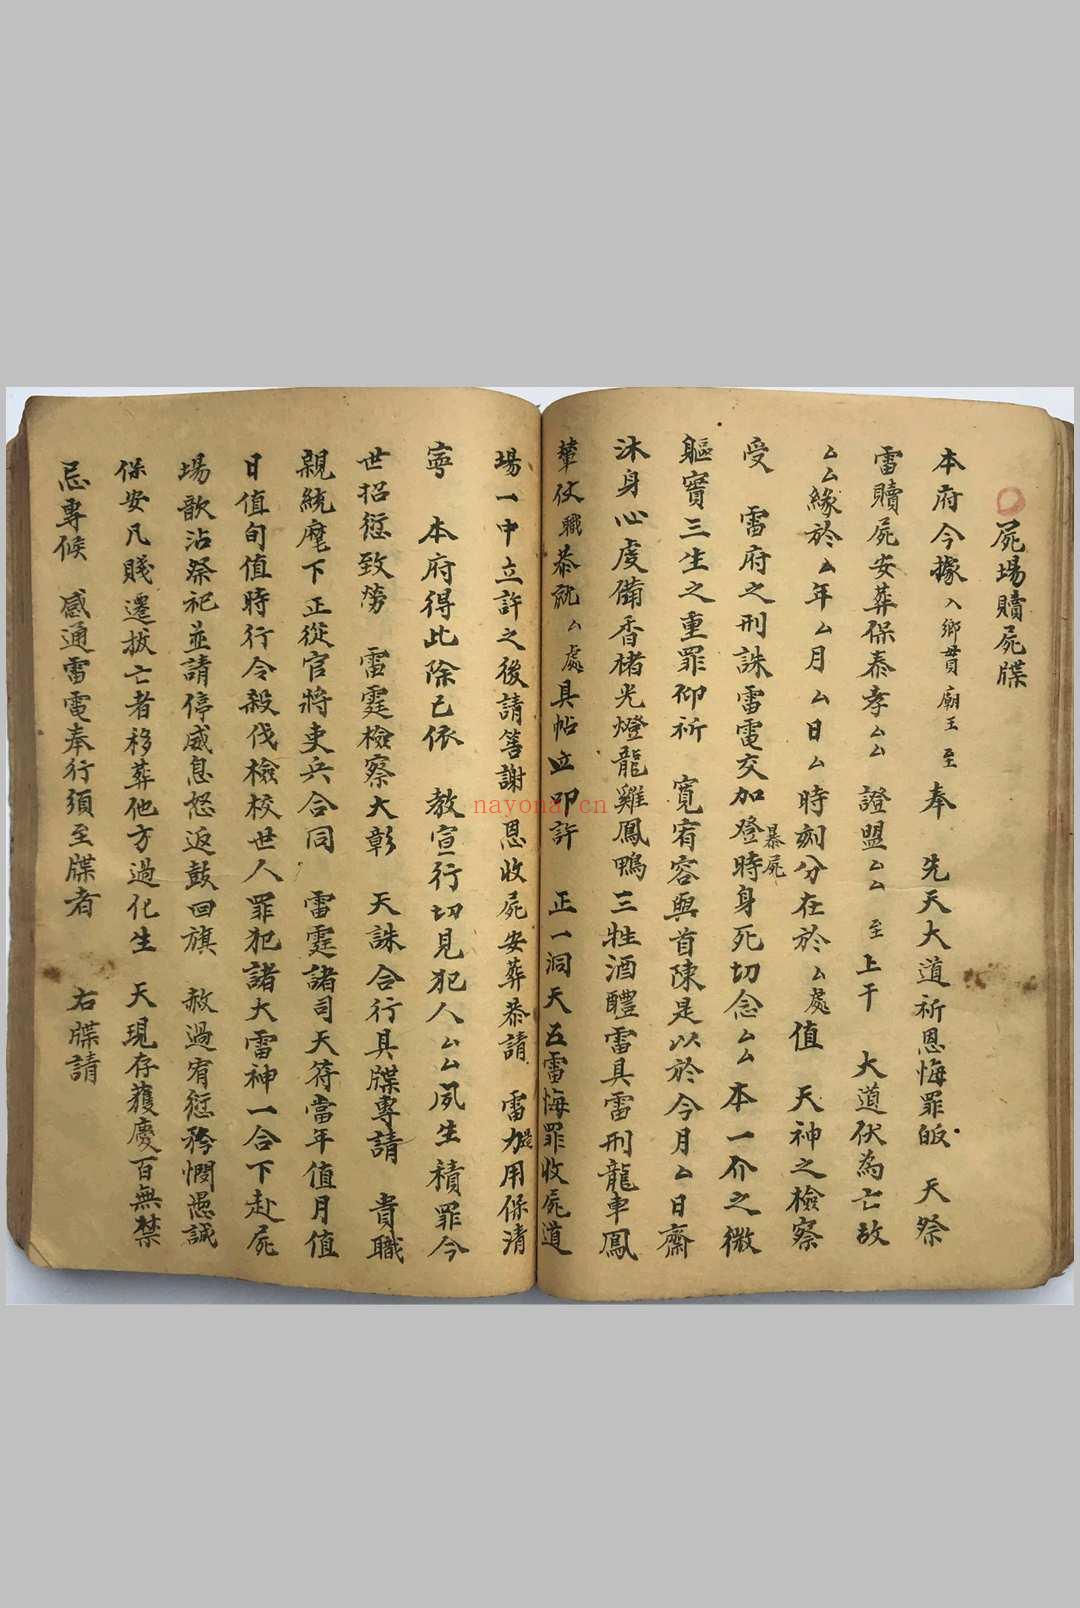 屍場贖屍牒
本府今據入鄉貫廟王至奉 先天大道祈恩悔罪皈 天祭
雷贖屍安葬保泰孝厶厶 證盟厶厶至上干 大道伏為亡故
厶厶緣於厶年厶月厶日厶時刻分在於厶處值 天神之檢察
受 雷府之刑誅雷電交加登時暴屍身死切念厶厶本一介之微
軀實三生之重罪仰祈 寬宥容與首陳是以於今月厶日齋
沐身心虔備香楮光燈龍雞鳳鴨三牲酒醴雷具雷刑龍車鳳
輦仗職恭就厶處具帖立叩許 正一洞天五雷悔罪收屍道
場一中立許之後請答謝恩收屍安葬恭請 雷力是用保清
寧 本府得此除已依 教宣行切見犯人厶厶夙生積罪今
世招愆致勞 雷霆檢察大彰 天誅合行具牒專請 貴職
親統麾下正從官將吏兵合同 雷霆諸司天符當年值月值
日值旬值時行令殺伐檢校世人罪犯諸大雷神一合下赴屍
場歆沾祭祀並請停威息怒返鼓回旗 赦過宥愆矜憫愚誠
保安凡賤遷拔亡者移葬他方過化生 天現存獲慶百無禁
忌專候 感通雷電奉行須至牒者 右牒請
nayona.cn